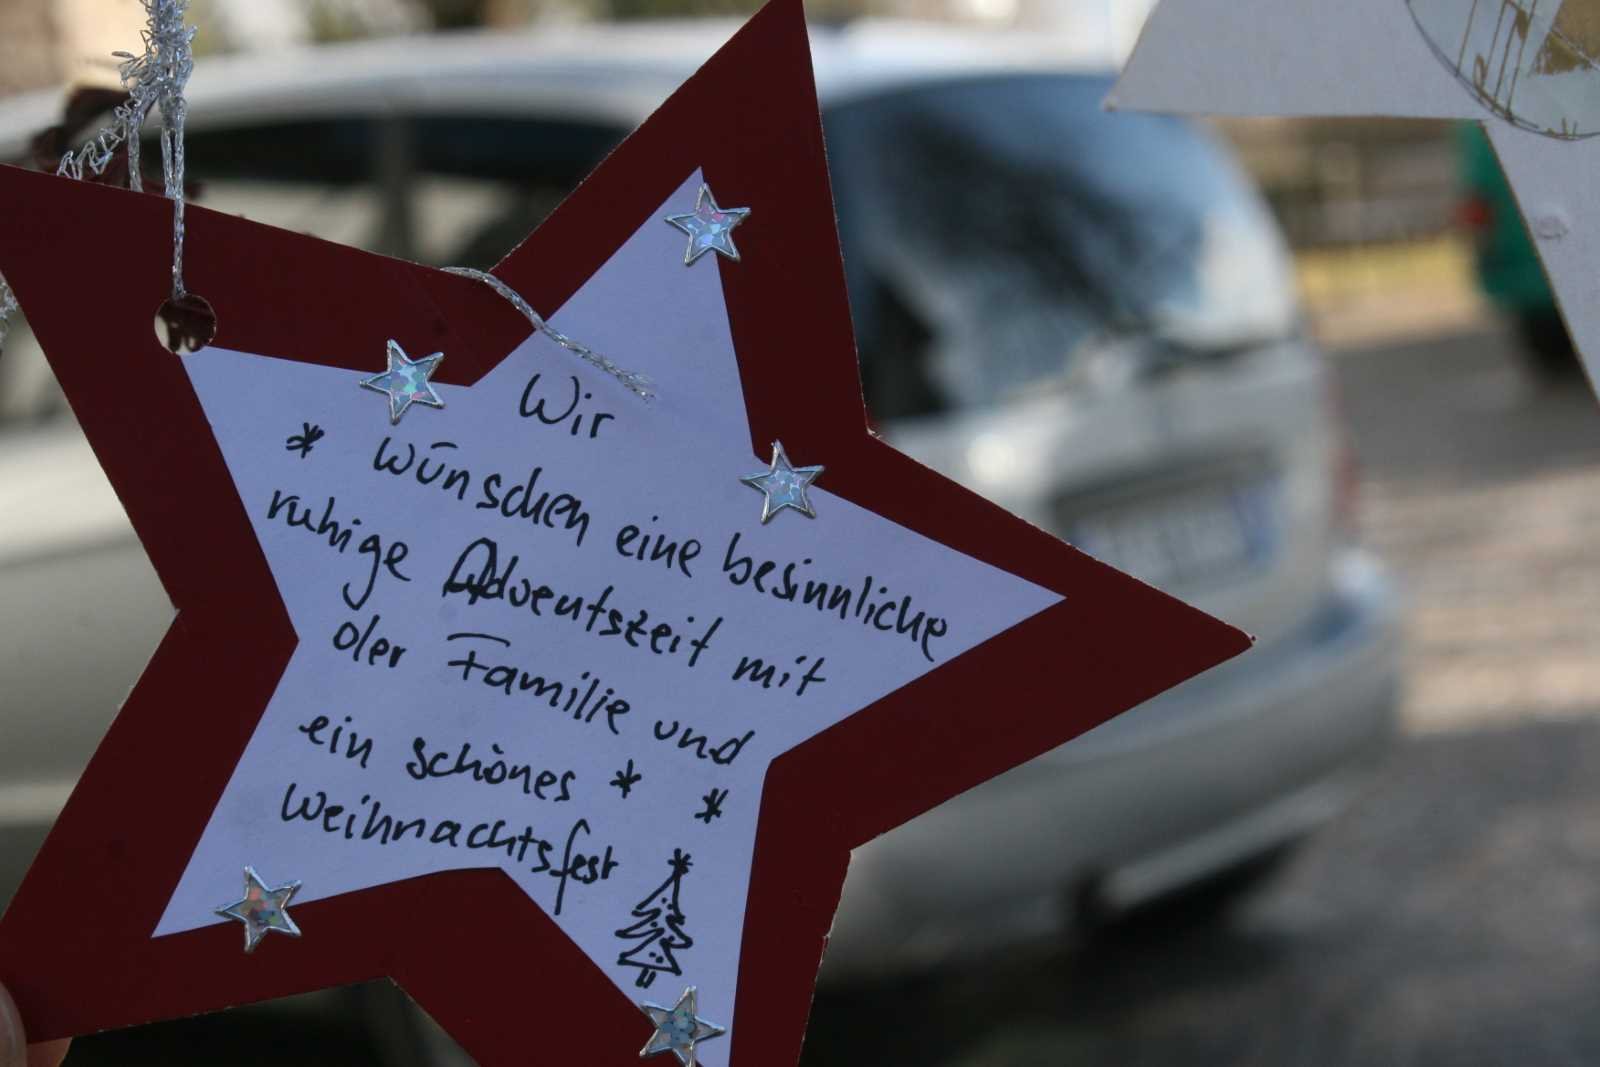 Wir
* wünschen eine besinnliche
ruhige Adventszeit mit
der Familie und
ein schönes * *
Weihnachtsfest